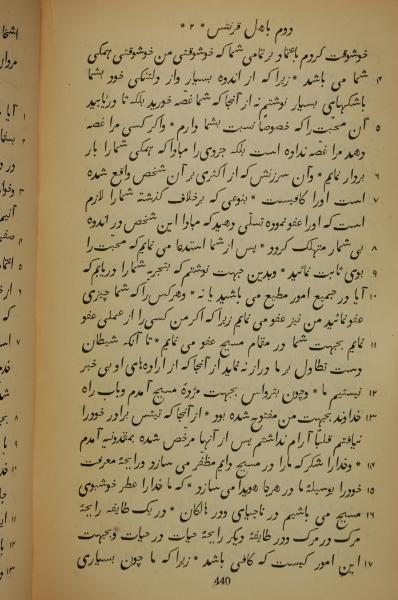 دوم باهل قرنتس * ۲ *
خوشوقت کردم باعتماد بر تمامی شما که خوشوقتی من خوشوقتی همکی
۴ شما می باشد * زیرا که از اندوه بسیار واز دلتنکی خود بشما
باشکهای بسیار نوشتم نه از آنجا که شما غصّه خورید بلکه تا دریابید
۵ آن محبّت را که خصوصاً نسبت بشما دارم * واکر کسی مرا غصّه
دهد مرا غصّه نداده است بلکه جزوی را مبادا که همکی شما را بار
۶ بردار نمایم * وآن سرزنش که از اکثری بر آن شخص واقع شده
۷ است اورا کافیست * بنوعی که برخلاف کذشته شما را لازم
است که اورا عفو نموده تسلّی دهید که مبادا این شخص در اندوه
۸ بی شمار متهلّک کردد * پس از شما استدعا می نمایم که محبّت را
۹ بوی ثابت نمائید * وبدین جهت نوشتم که بتجربه شما را دریابم که
۱۰ آیا در جمیع امور مطیع می باشید یا نه * وهر کس را که شما چیزی
عفو نمائید من نیز عفو می نمایم زیرا که اکر من کسی را از عملی عفو
۱۱ نمایم بجهت شما در مقام مسیح عفو می نمایم * تا آنکه شیطان
دست تطاول بر ما دراز نماید از آنجا که از اراده‌های او بی خبر
۱۲ نیستیم ما * وچون بترواس بجهت مژدهٔ مسیح آمدم وباب راه
۱۳ خداوند بجهت من مفتوح شده بود * از آنجا که تیتس برادر خود را
نیافتم قلباً آرام نداشتم پس از آنها مرخّص شده بمقدونیه آمدم
۱۴ * وخدا را شکر که ما را در مسیح دایم مظفّر می سازد ورایحهٔ معرفت
۱۵ خود را بوسیلهٔ ما در هر جا هویدا می سازد * که ما خدا را عطر خوشبوی
۱۶ مسیح می باشیم در ناجیان ودر هالکان * در یک طایفه رایحهٔ
مرک در مرک ودر طایفهٔ دیکر رایحهٔ حیات در حیات وبجهت
۱۷ این امور کیست که کافی باشد * زیرا که ما چون بسیاری
440